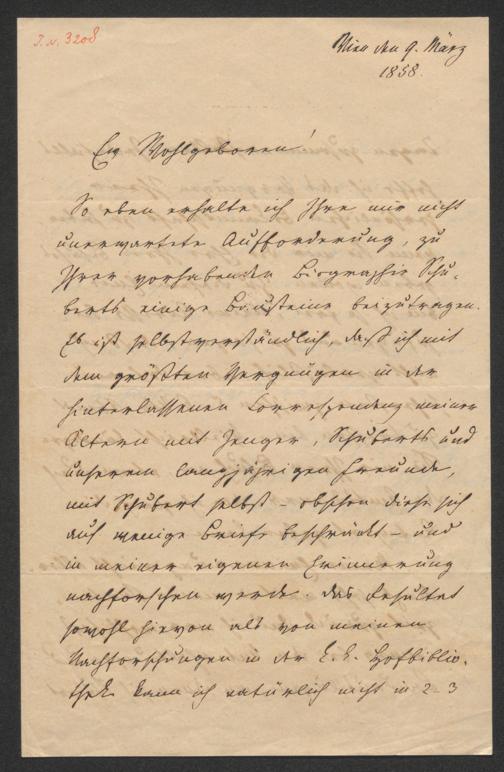 I.N. 3208
Wien den 9. März
1858.
Ew Wohlgeboren!
So eben erhalte ich Ihre mir nicht
unerwartete Aufforderung, zu
Ihrer vorhabenden Biographie Schu-
berts einige Bausteine beizutragen.
Es ist selbstverständlich, daß ich mit
dem größten Vergnügen in der
hinterlassenen Correspondenz meiner
Ältern mit Jenger, Schuberts und
unserem langjährigen Freunde,
mit Schubert selbst – obschon diese sich
auf wenige Briefe beschränkt – und
in meiner eigenen Erinnerung
nachforschen werde. Das Resultat
sowohl hievon als von meinen
Nachforschungen in der k. k. Hofbiblio-
thek kann ich natürlich nicht in 2–3